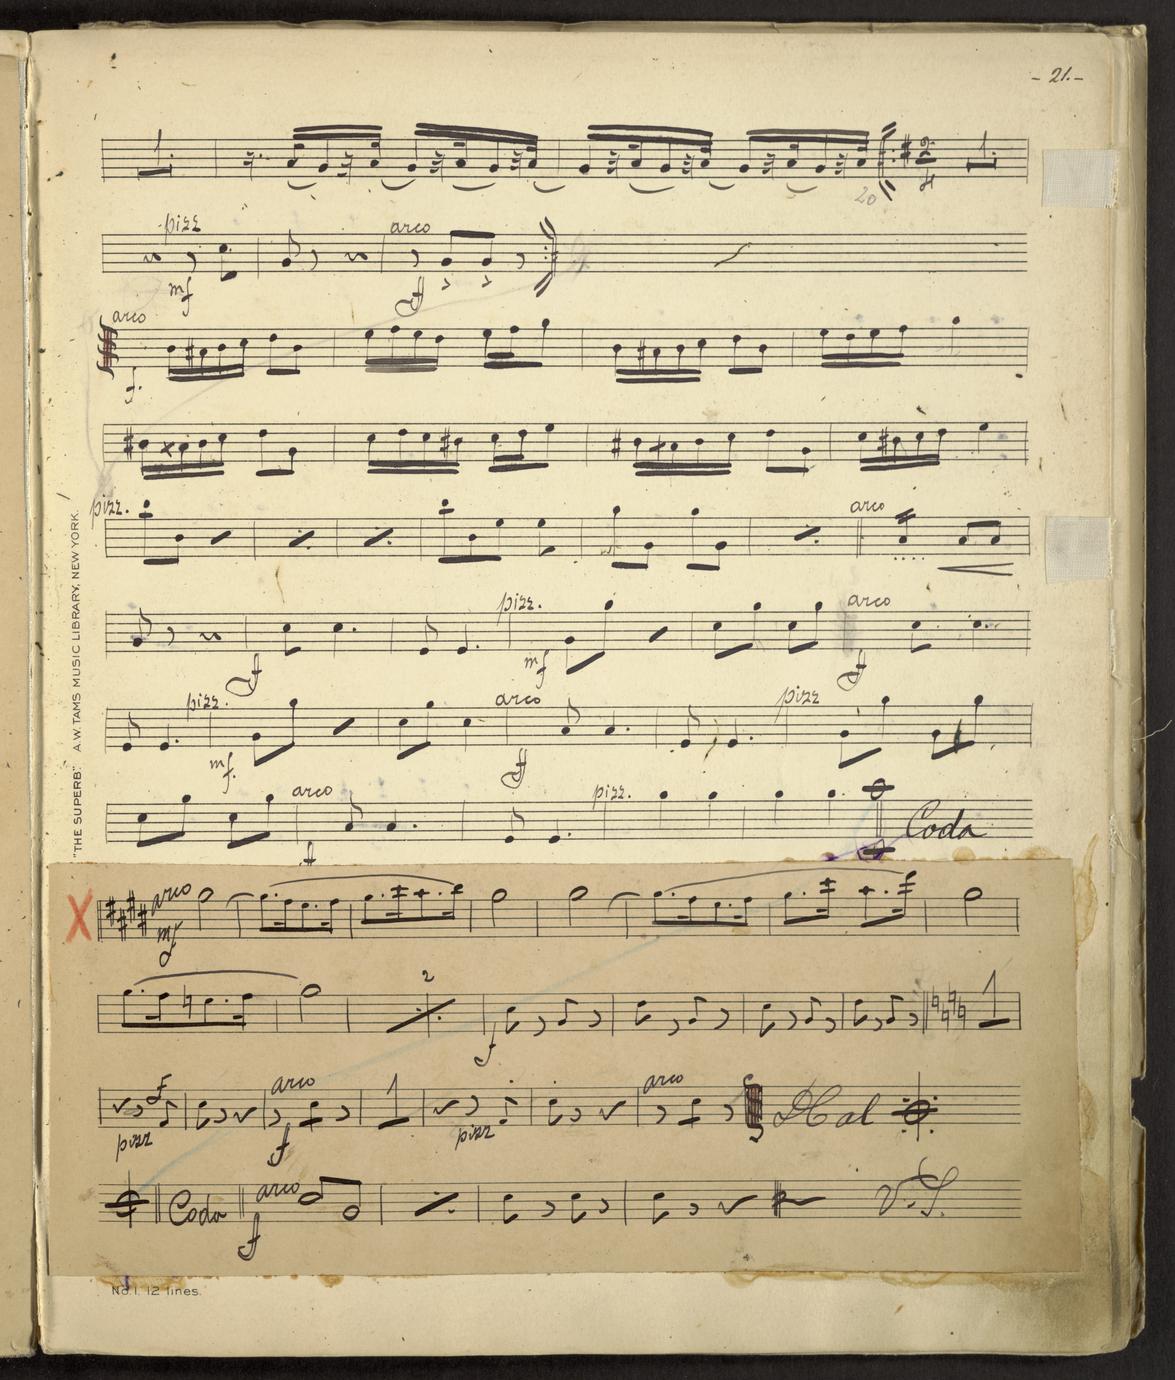 - 21. -
1.
2
4
1.
20
pizz
arco
mf
f
arco
f.
pizz.
arco
pizz.
arco
f
mf
f
pizz.
arco
pizz
mf.
f
arco
pizz.
Coda
f
X arco
mf
2
f
1
f
arco
1
arco
DC al
pizz
f
pizz
Coda
arco
V.S.
f
No. 1. 12 lines.
"THE SUPERB." A.W. TAMS MUSIC LIBRARY, NEW YORK.